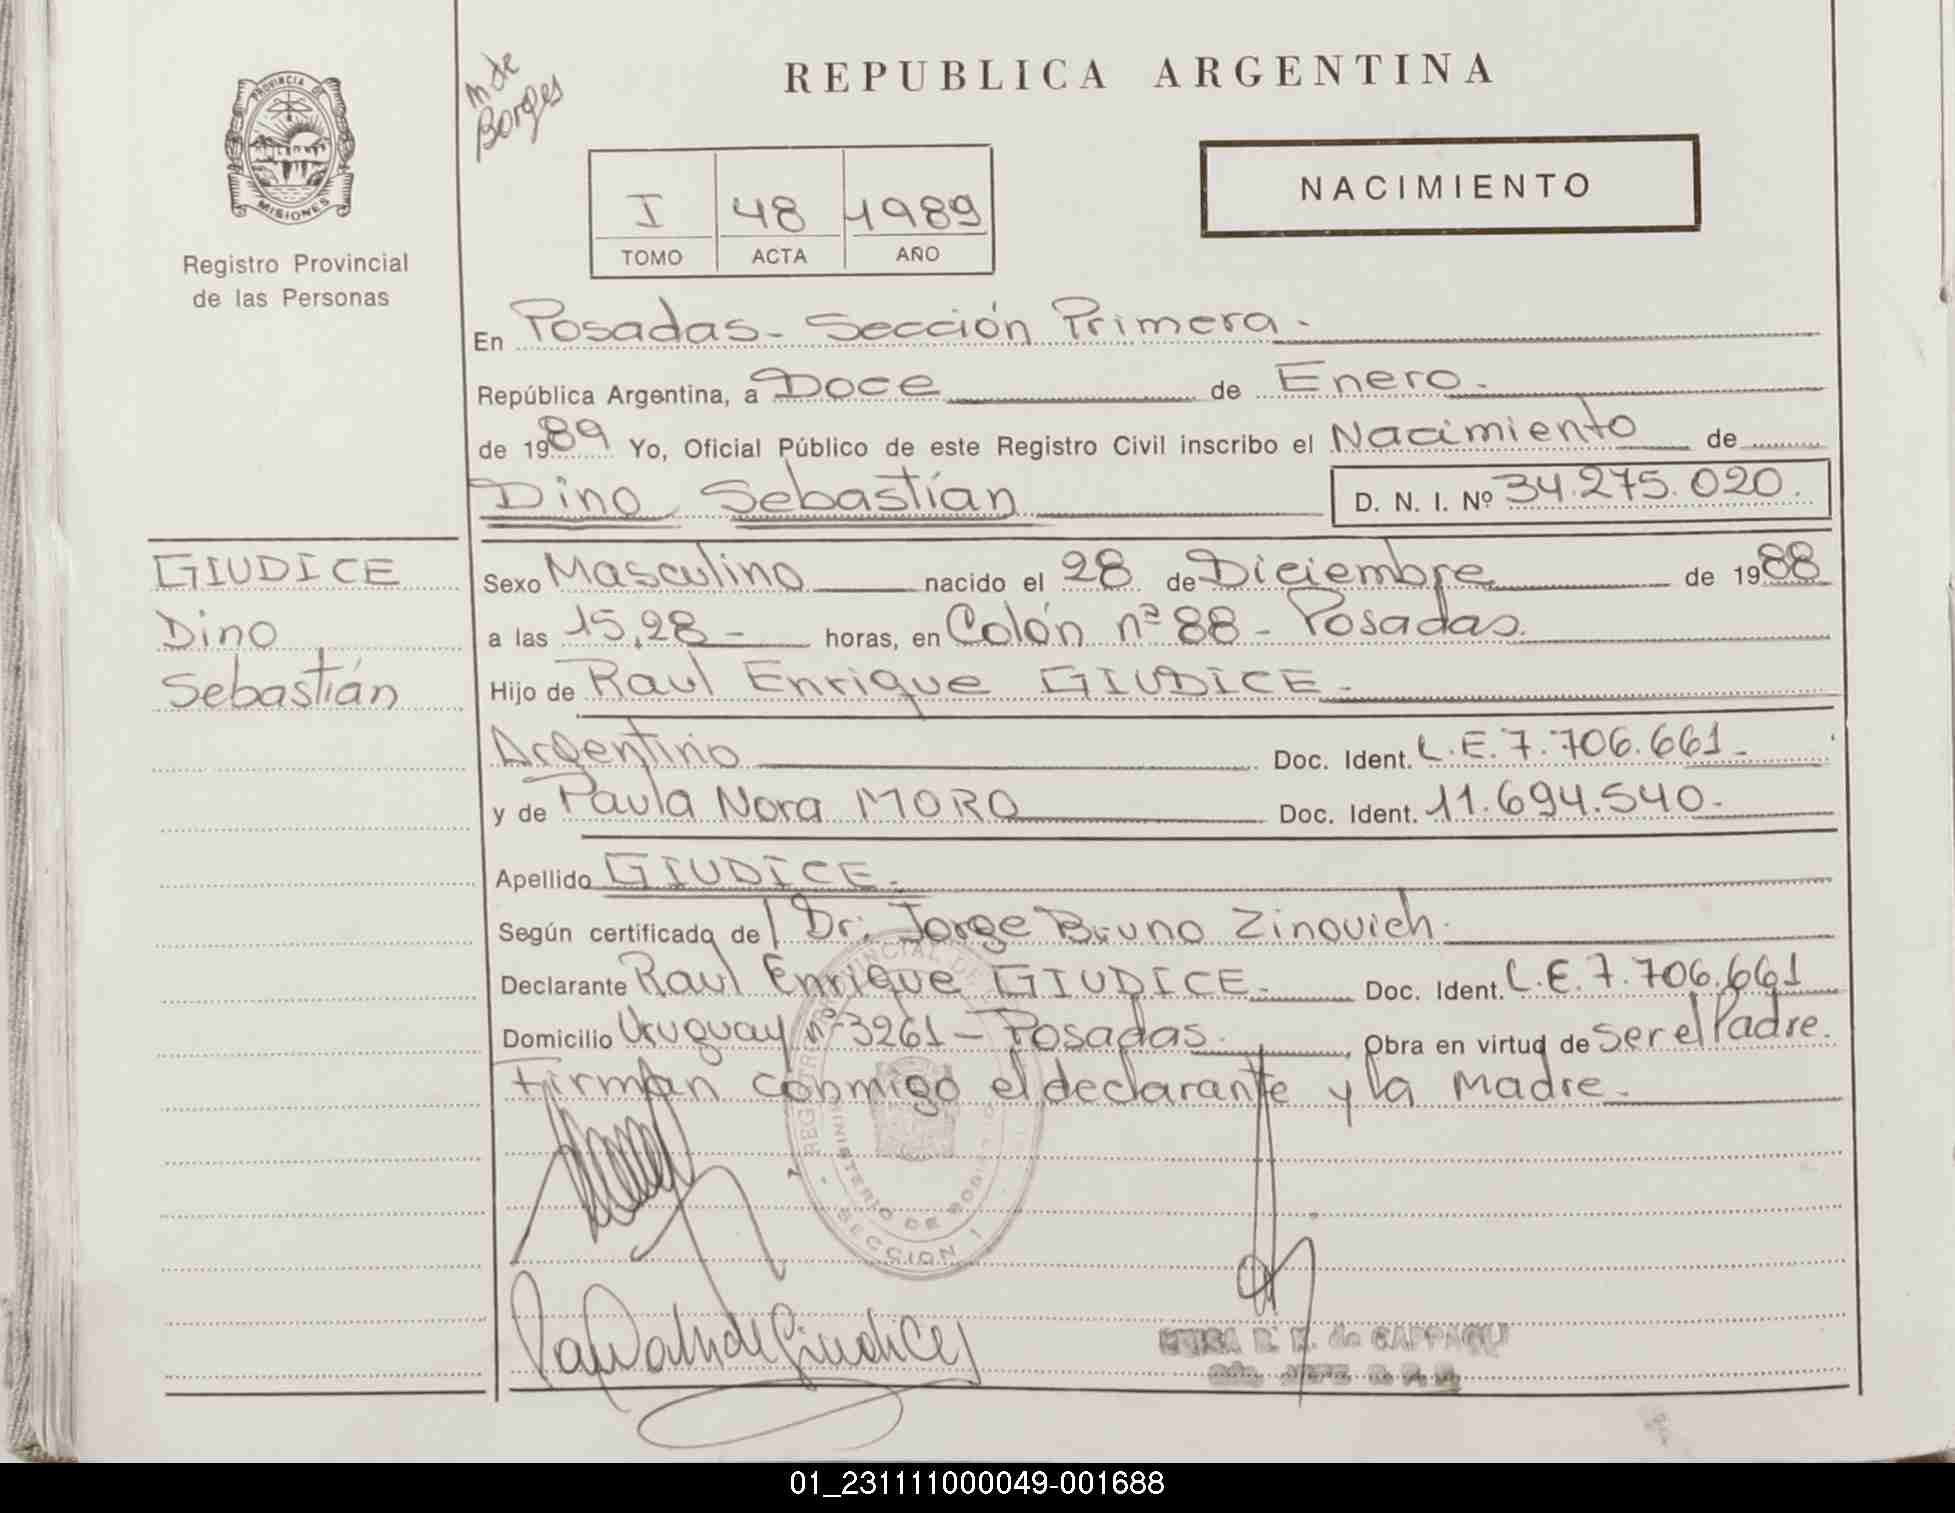 m de
Borges
REPUBLICA ARGENTINA
PROVINCIA DE
MISIONES
Registro Provincial
de las Personas
I 48 1989
TOMO ACTA AÑO
NACIMIENTO
En Posadas - Sección Primera -
República Argentina, a Doce de Enero.
de 1989 Yo, Oficial Público de este Registro Civil inscribo el Nacimiento de
Dino Sebastían D. N. I. Nº 34.275.020.
GIUDICE
Dino
Sebastián
Sexo Masculino nacido el 28 de Diciembre de 1988
a las 15,28 - horas, en Colón nº 88 - Posadas.
Hijo de Raul Enrique GIUDICE -
Argentino Doc. Ident. L.E. 7.706.661 -
y de Paula Nora MORO Doc. Ident. 11.694.540 -
Apellido GIUDICE -
Según certificado de l Dr: Jorge Bruno Zinovich.
Declarante Raul Enrique GIUDICE - Doc. Ident. L.E. 7.706.661
Domicilio Uruguay nº 3261 - Posadas. , Obra en virtud de Ser el Padre.
Firman conmigo el declarante y la madre -
SECCION 1
de Giudice
01_231111000049-001688